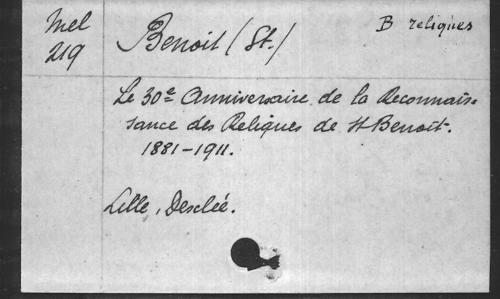 Mel
219
Benoit (St.)
B reliques
Le 30e Anniversaire de la Reconnais-
sance des Reliques de St Benoit.
1881-1911.
Lille, Desclée.